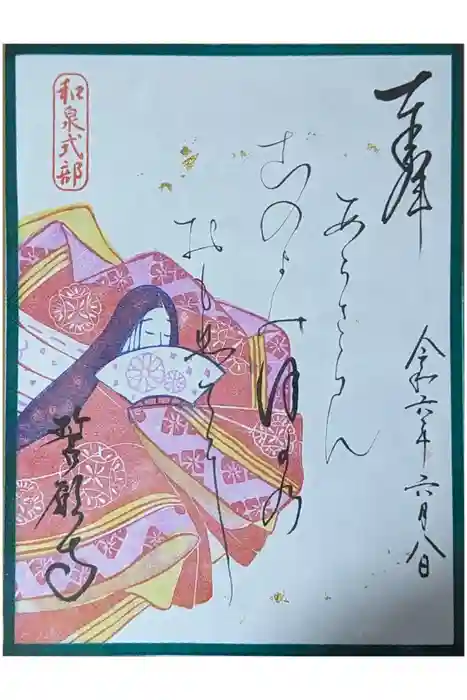 奉拝
令和六年六月八日
あらさらん
このよのほかの
おもひてに
和泉式部
誓願寺